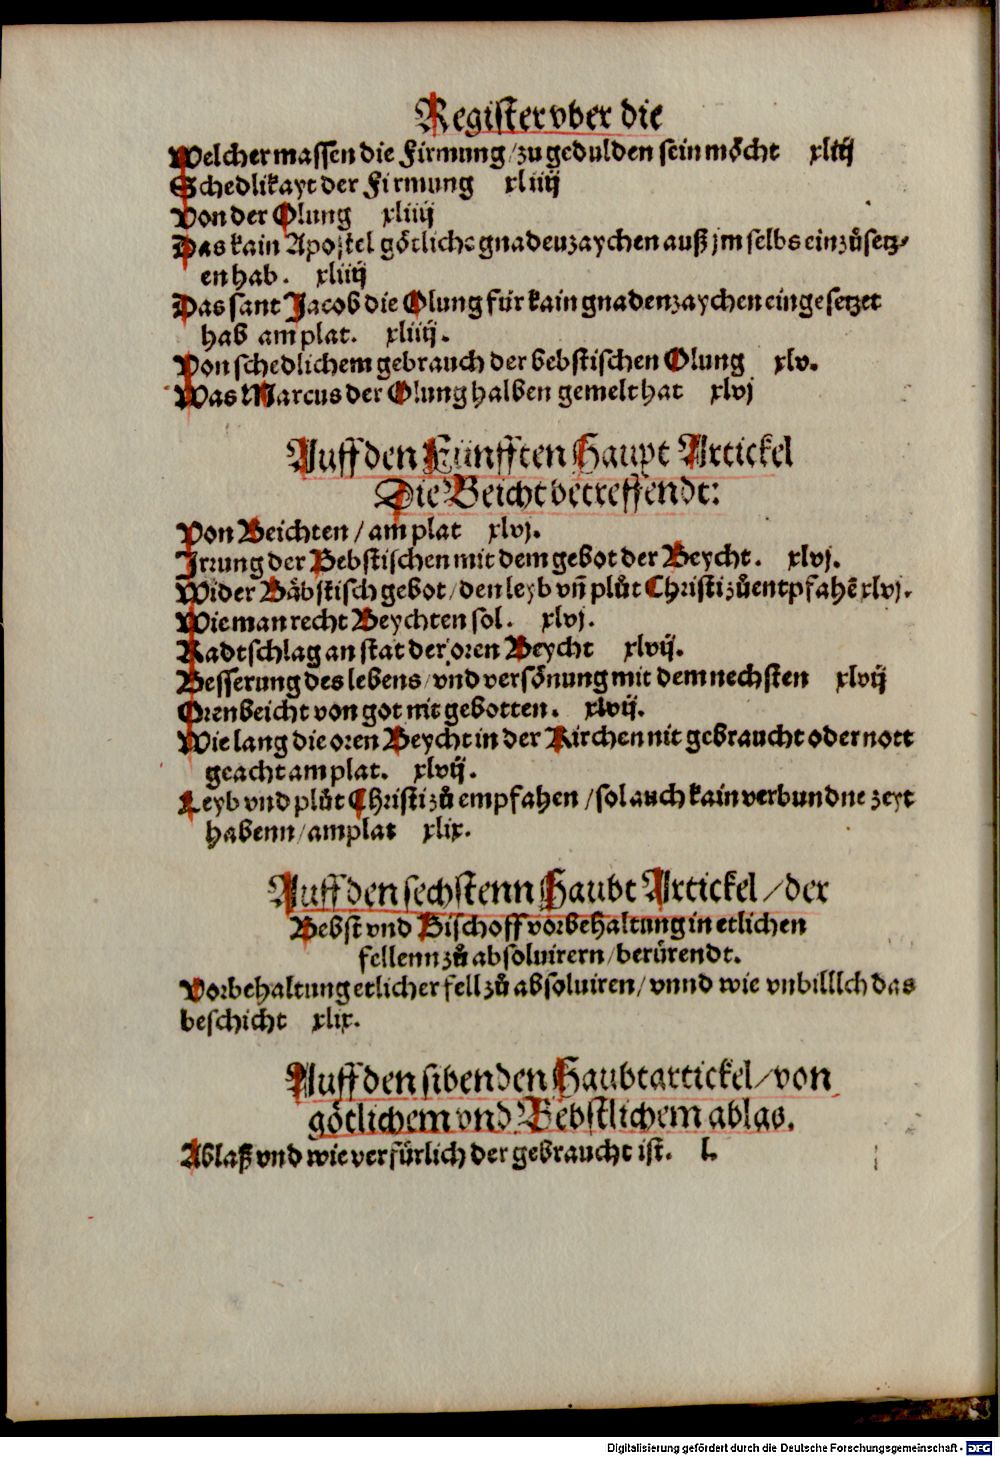 Register vber die
Welcher massen die Firmung / zu gedulden sein möcht xliiij
Schedlikayt der Firmung xliiij
Von der Ölung xliiij
Das kain Apostel götliche gnadenzaychen auß jm selbs einzůsetz⸗
en hab. xliiij
Das sant Jacob die Ölung für kain gnadenzaychen eingesetzet
hab am plat. xliiij.
Von schedlichem gebrauch der bebstischen Ölung xlv.
Was Marcus der Ölung halben gemelt hat xlvj
Auff den Fünfften Haupt Artickel
Die Beicht betreffendt:
Von Beichten / am plat xlvj.
Irrung der Bebstischen mit dem gebot der Beycht. xlvj.
Wider Bäbstisch gebot / den leyb vñ plůt Christi zůentpfahẽ xlvj.
Wie man recht Beychten sol. xlvj.
Radtschlag an stat der oren Beycht xlvij.
Besserung des lebens / vnd versönung mit dem nechsten xlvij
Orenbeicht von got nit gebotten. xlvij.
Wie lang die oren Beycht in der Kirchen nit gebraucht oder nott
geacht am plat. xlvij.
Leyb vnd plůt Christi zů empfahen / sol auch kain verbundne zeyt
habenn / am plat xlix.
Auff den sechstenn Haubt Artickel / der
Bebst vnd Bischoff vorbehaltung in etlichen
fellenn zů absoluirern / berürendt.
Vorbehaltung etlicher fell zů absoluiren / vnnd wie vnbilllch das
beschicht xlix.
Auff den sibenden Haubtartickel / von
götlichem vnd Bebstlichem ablas.
Ablaß vnd wie verfürlich der gebraucht ist. l.
Digitalisierung gefördert durch die Deutsche Forschungsgemeinschaft - DFG